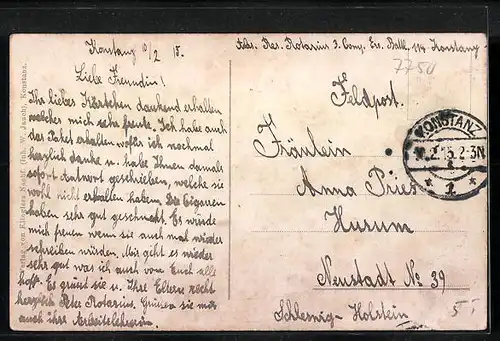 Konstanz 10/2 15.
Liebe Freundin!
Ihr liebes Kärtchen dankend erhalten
welches mich sehr freute. Ich habe auch
das Paket erhalten wofür ich nochmal
herzlich danke u. habe Ihnen damals
sofort Antwort geschrieben, welche sie
wohl nicht erhalten haben. Die Cigarren
haben sehr gut geschmeckt. Es würde
mich freuen wenn sie auch mal wieder
schreiben würden. Mir geht es wieder
sehr gut was ich auch von Euch alle
hoffe. Es grüsst sie u. Ihre Eltern recht
herzlich Peter Rotarius. Grüssen sie mir
auch ihre
Abs. Res. Rotarius 3. Comp. Ers. Batl. 114 Konstanz
7750
Feldpost.
KONSTANZ
2.15.2-3N
* 1 *
Fräulein
Anna
Husum
Neustadt No 39
Schleswig-Holstein
5
Verlag von Nachf. (Inh. W. Jausch), Konstanz.